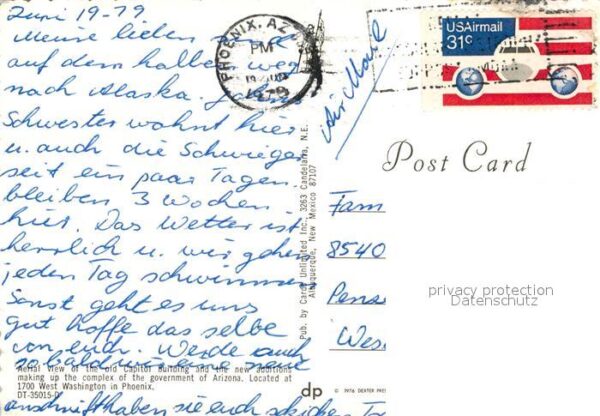 Juni 19-79
Meine lieben
auf dem halben weg
nach Alaska
Schwester wohnt hier
u. auch die Schwieger
seit ein paar Tagen.
bleiben 3 Wochen
hier. Das Wetter ist
herrlich u. wir gehen
jeden Tag schwimmen
Sonst geht es uns
gut hoffe das selbe
von euch. Werde auch
sobald wir neue
Aerial view of the old Capitol Building and the new additions
making up the complex of the government of Arizona. Located at
1700 West Washington in Phoenix.
DT-35015-D
anschrift haben sie euch schicken
PHOENIX, AZ
PM
1979
USAirmail
31c
Air Mail
Post Card
Pub. by Cards Unlimited Inc., 3263 Candelaria, N.E.
Albuquerque, New Mexico 87107
Fam
8540
Pens
Wes
privacy protection
Datenschutz
dp
© 1976 DEXTER PRE